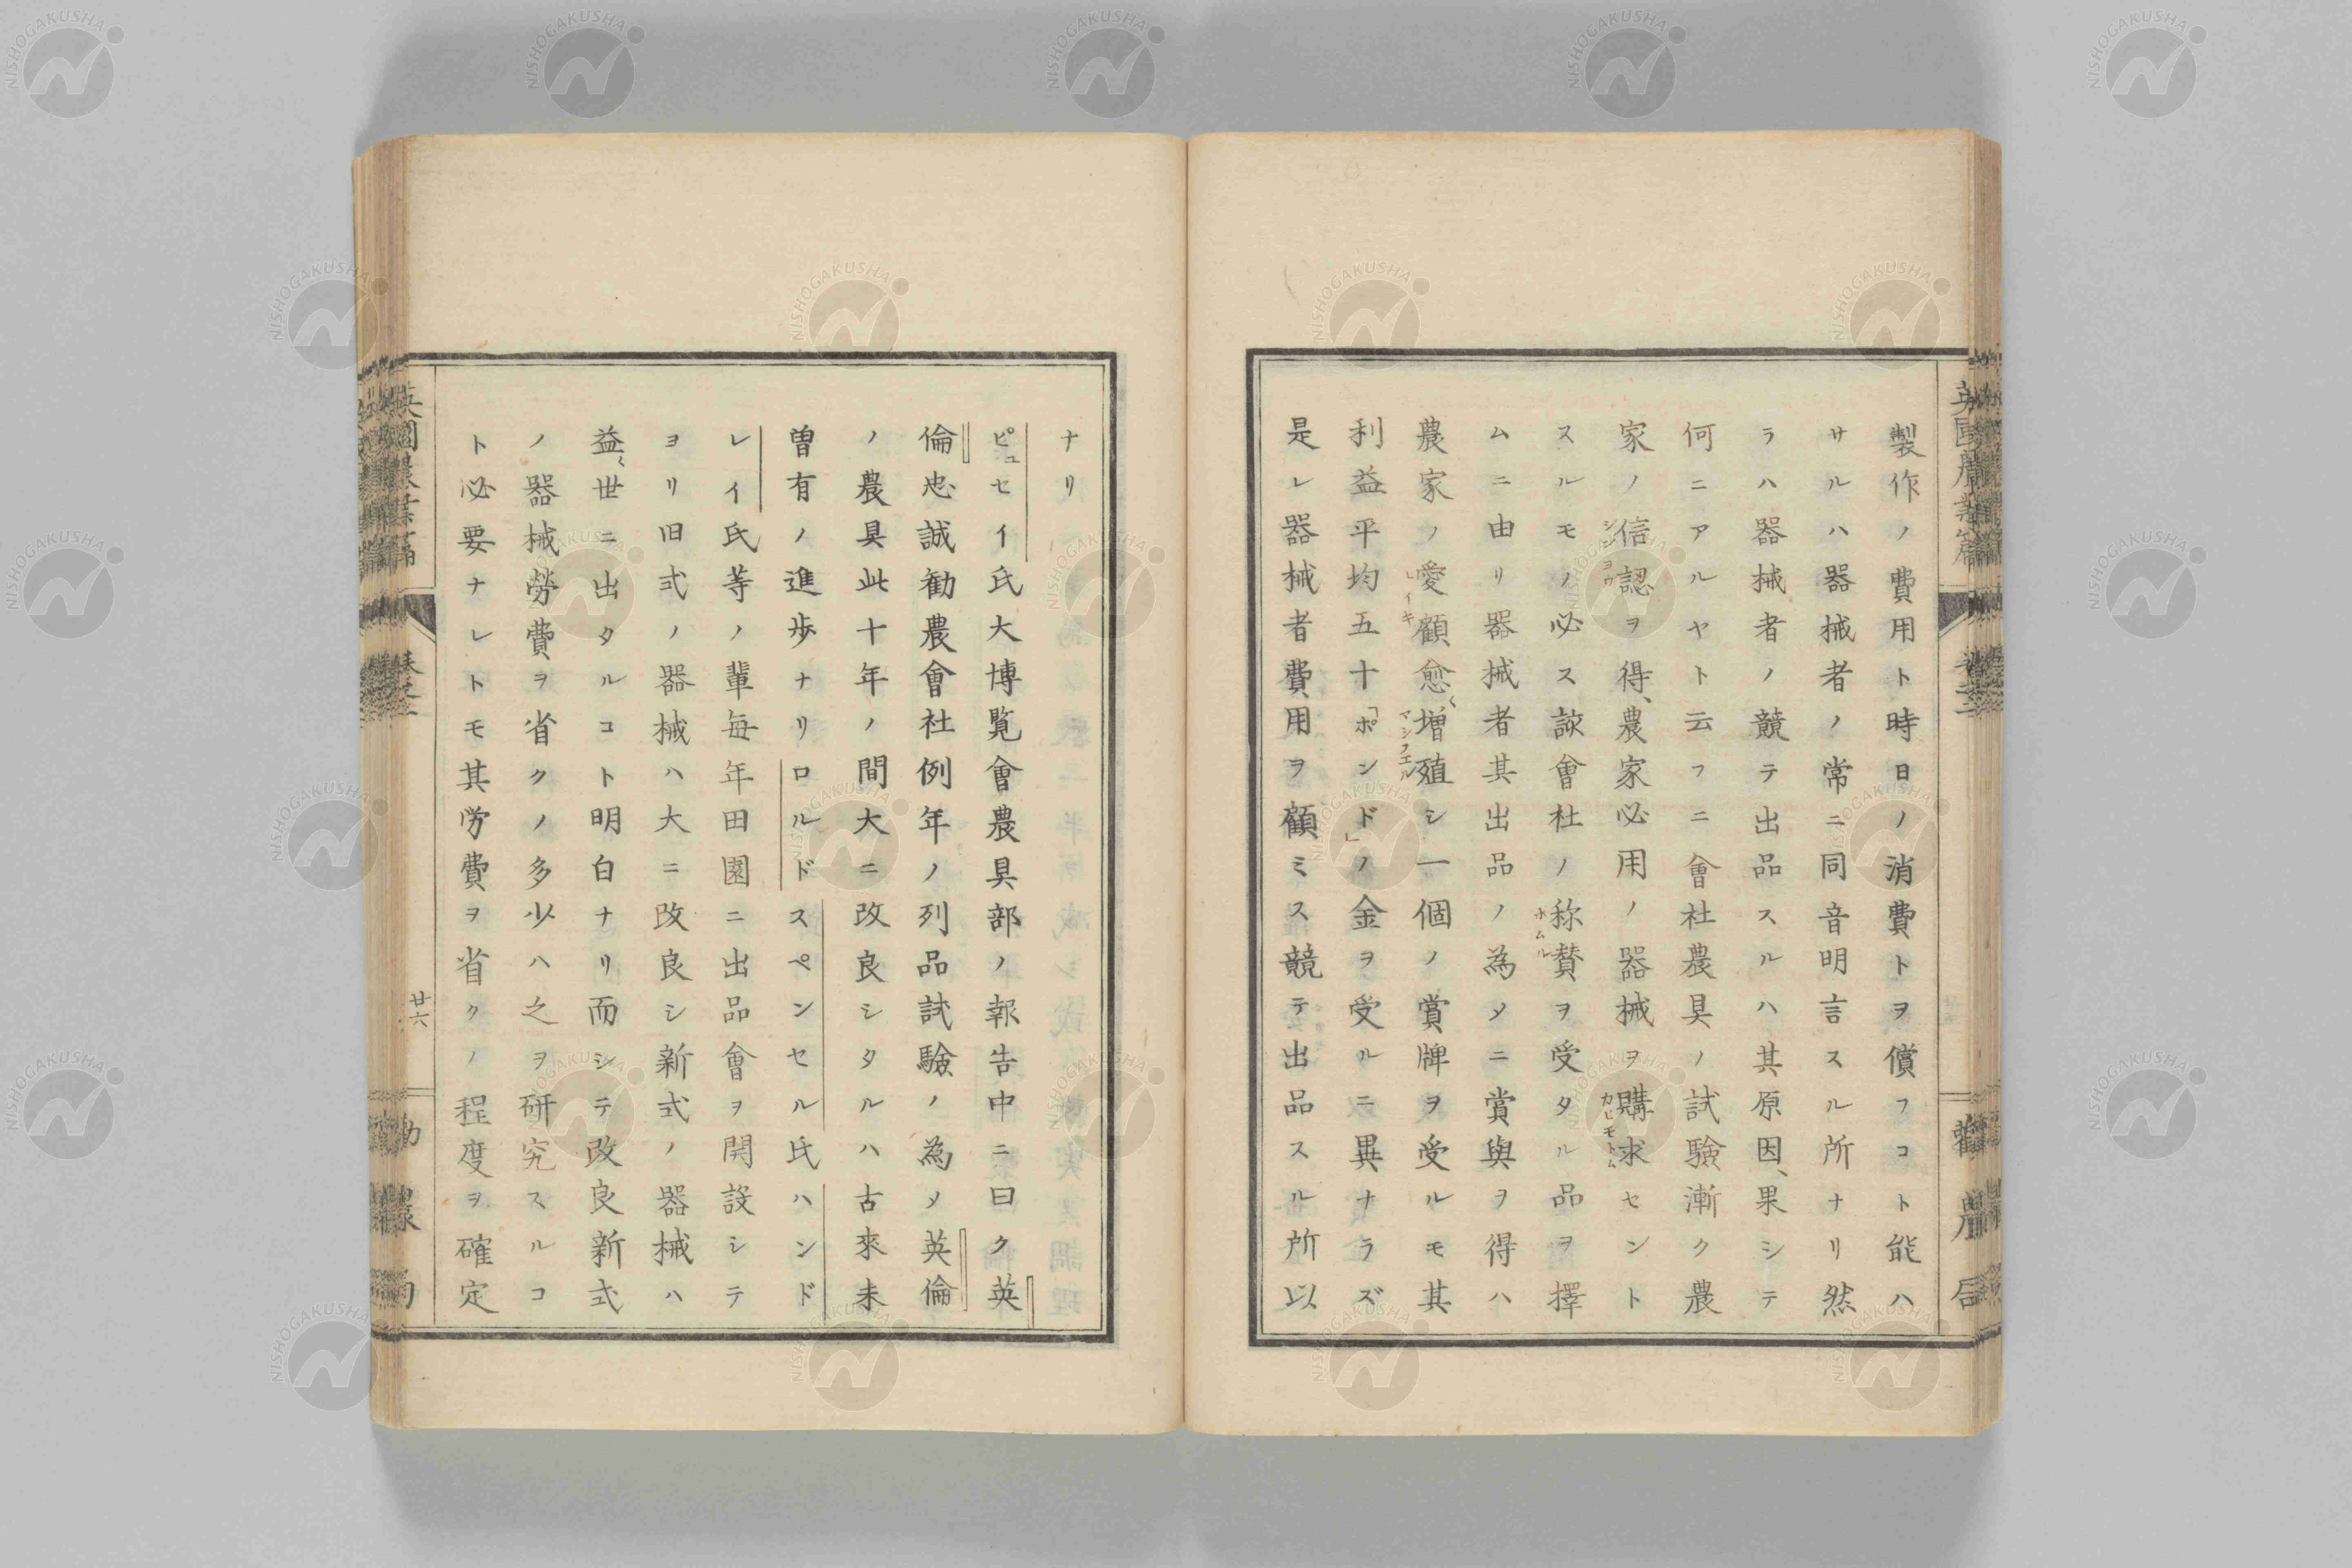 製作ノ費用ト時日ノ消費トヲ償フコト能ハ
サルハ器械者ノ常ニ同音明言スル所ナリ然
ラハ器械者ノ競テ出品スルハ其原因、果シテ
何ニアルヤト云フニ會社農具ノ試験漸ク農
家ノ信認ヲ得、農家必用ノ器械ヲ購求セント
スルモノ必ス該會社ノ称賛ヲ受タル品ヲ擇
ムニ由リ器械者其出品ノ為メニ賞與ヲ得ハ
農家ノ愛顧愈〻増殖シ一個ノ賞牌ヲ受ルモ其
利益平均五十「ポンド」ノ金ヲ受ルニ異ナラズ
是レ器械者費用ヲ顧ミス競テ出品スル所以
ナリ
ピュセイ氏大博覧會農具部ノ報告中ニ曰ク英
倫忠誠勧農會社例年ノ列品試驗ノ為メ英倫
ノ農具此十年ノ間大ニ改良シタルハ古來未
曽有ノ進歩ナリロルドスペンセル氏ハンド
レイ氏等ノ輩毎年田園ニ出品會ヲ開設シテ
ヨリ旧式ノ器械ハ大ニ改良シ新式ノ器械ハ
益〻世ニ出タルコト明白ナリ而シテ改良新式
ノ器械勞費ヲ省クノ多少ハ之ヲ研究スルコ
ト必要ナレトモ其労費ヲ省クノ程度ヲ確定
廿六